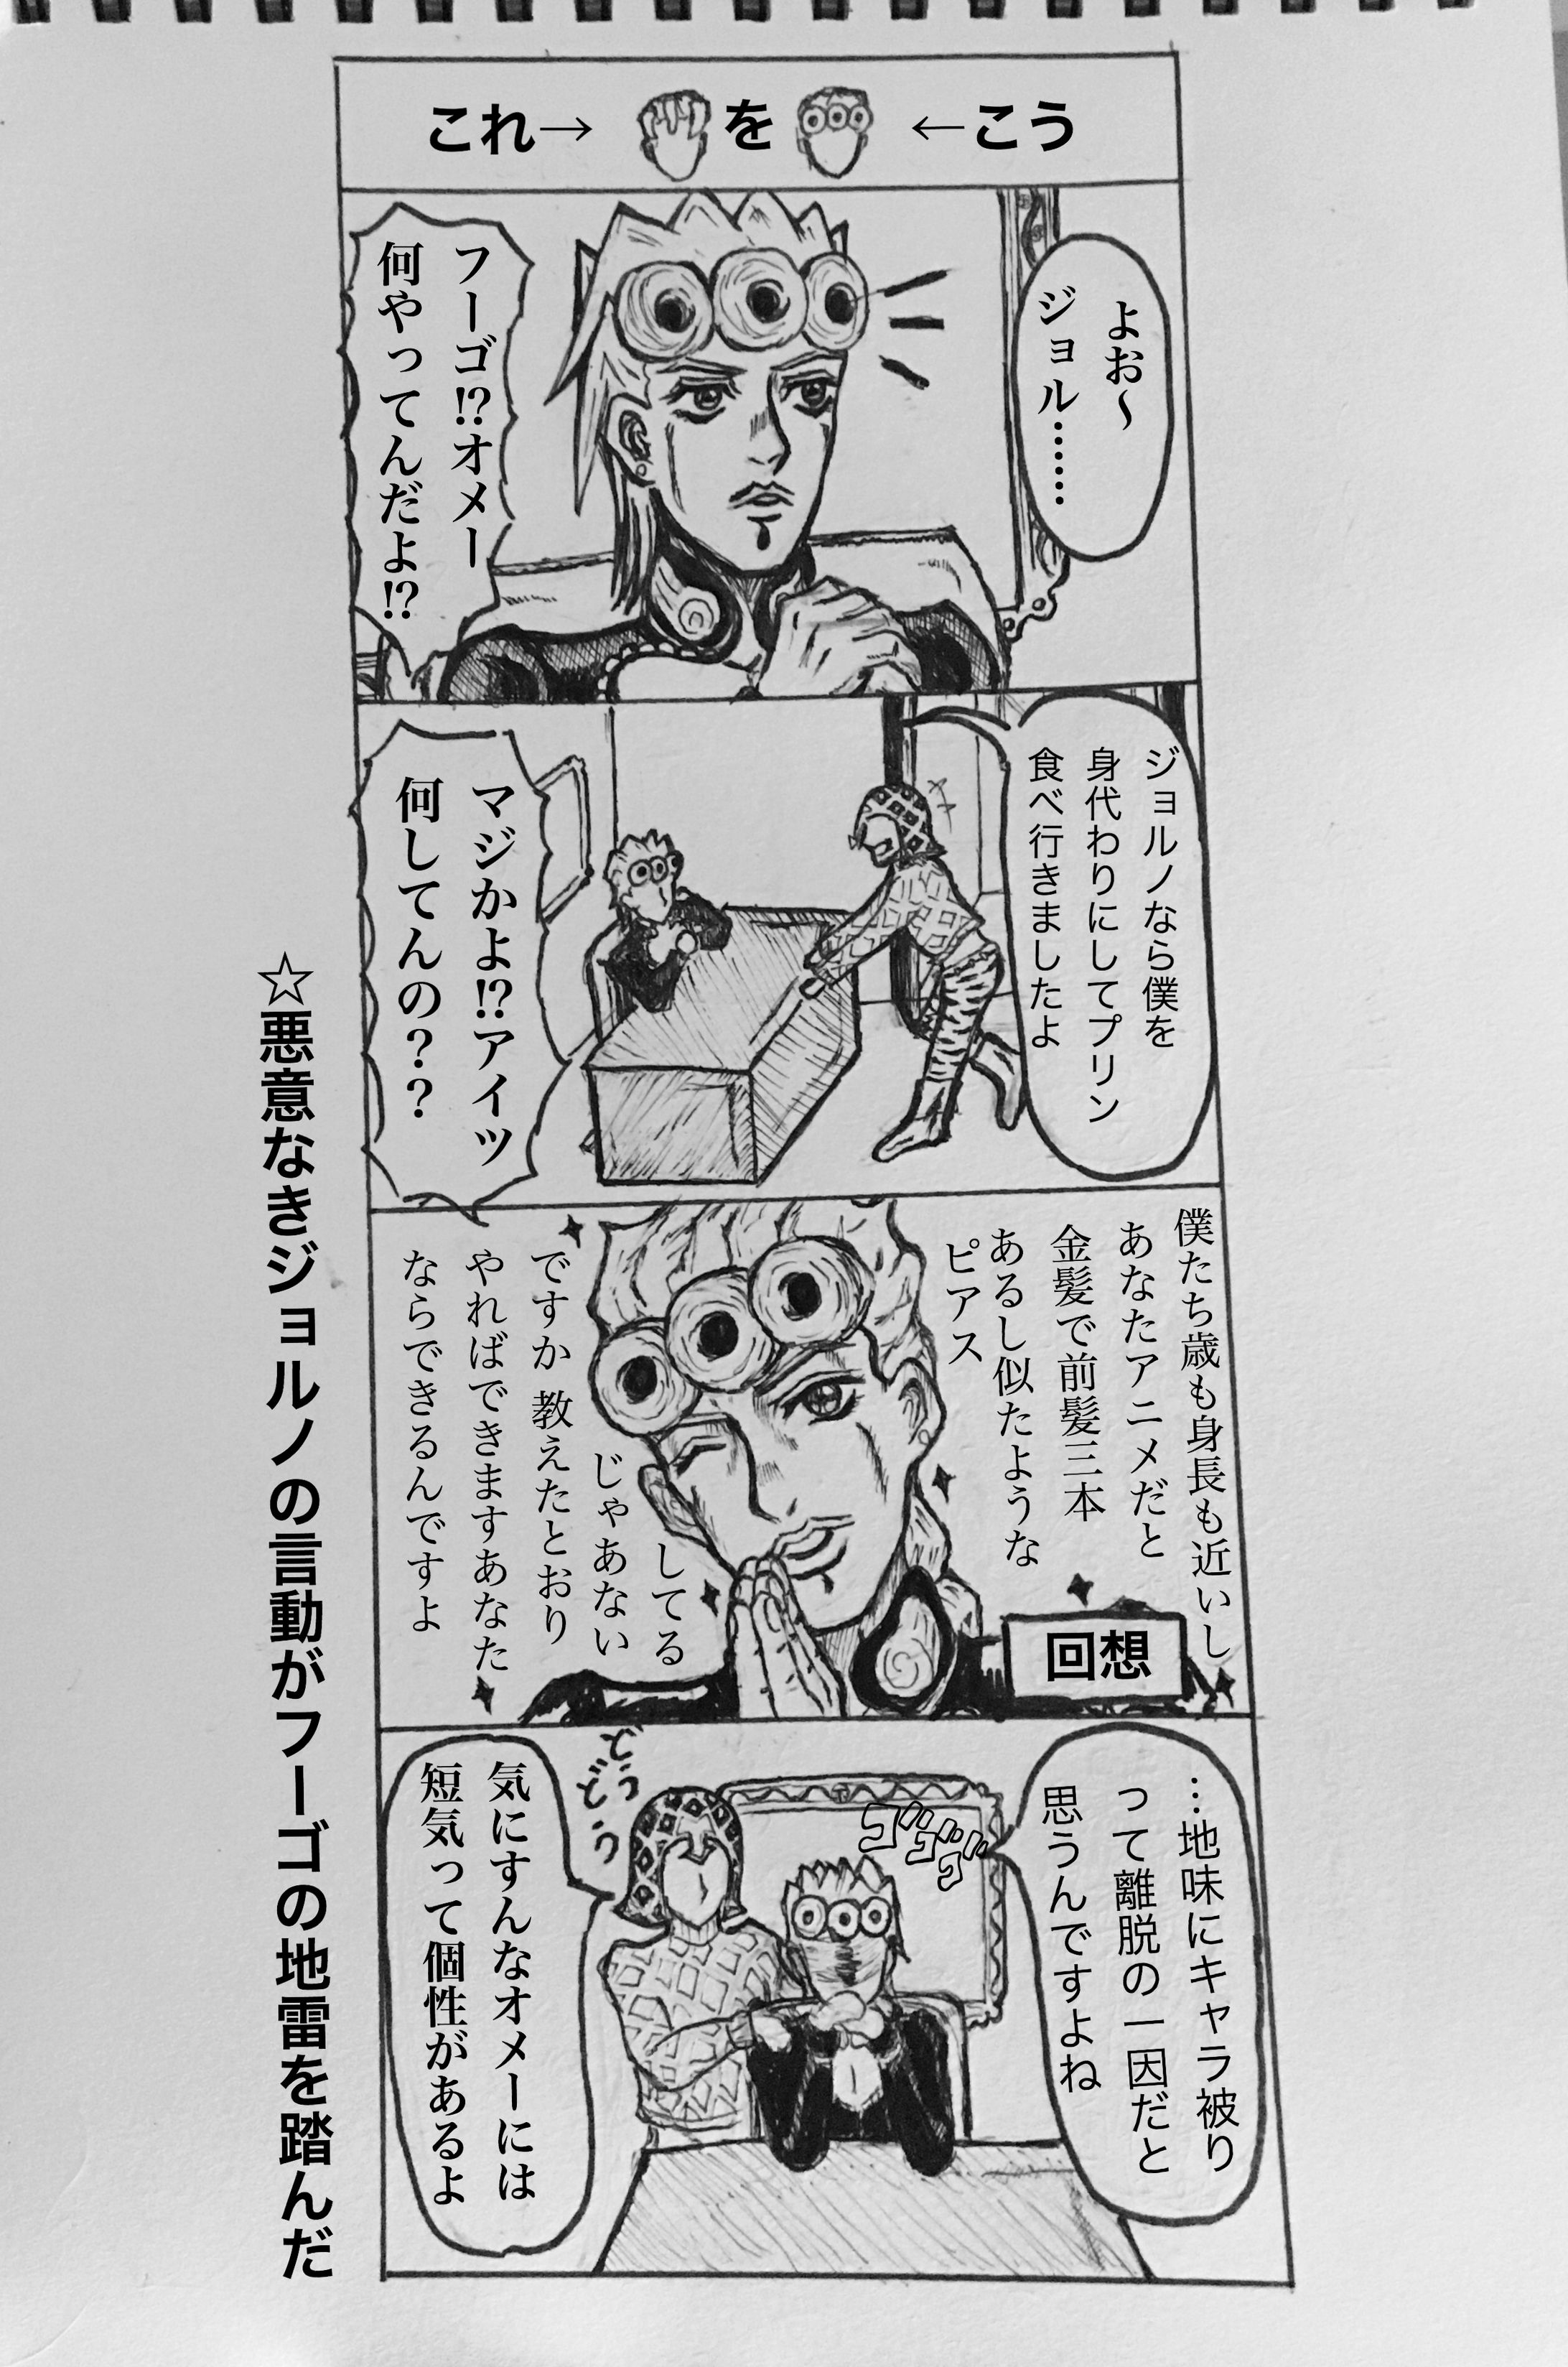 これ→を←こう
よお〜
ジョル………
フーゴ!?オメー
何やってんだよ!?
ジョルノなら僕を
身代わりにしてプリン
食べ行きましたよ
マジかよ!?アイツ
何してんの？？
僕たち歳も身長も近いし
あなたアニメだと
金髪で前髪三本
あるし似たような
ピアス
してる
じゃあない
ですか 教えたとおり
やればできますあなた
ならできるんですよ
回想
…地味にキャラ被り
って離脱の一因だと
思うんですよね
ゴゴゴゴ
どう
どう
気にすんなオメーには
短気って個性があるよ
☆悪意なきジョルノの言動がフーゴの地雷を踏んだ